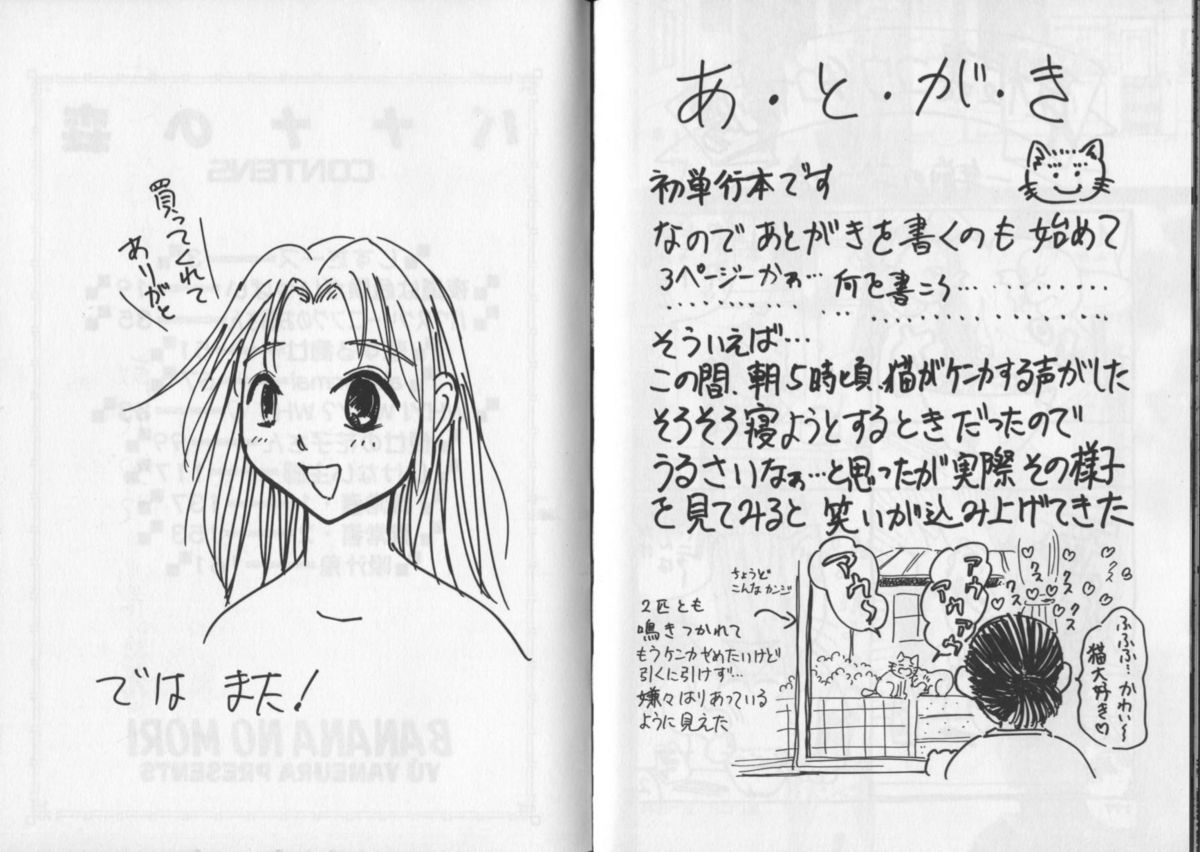 あ・と・が・き
初単行本です
なので あとがきを書くのも 始めて
3ページーかぁ… 何を書ころ…
そういえば…
この間、朝5時頃、猫がケンカする声がした
そろそろ寝ようとするときだったので
うるさいなぁ…と思ったが実際 その様子
を見てみると 笑いが込み上げてきた
ちょうど
こんなカンジ
2匹とも
鳴きつかれて
もうケンカやめたいけど
引くに引けず…
嫌々はりあっている
ように見えた
アウ〜
アウ
アウアウ
クス
クス
クス
クス
ふふふ… かわい〜
猫大好き♡
買ってくれて
ありがと
では また!
バナナの森
CONTENS
BANANA NO MORI
YÛ YANEURA PRESENTS